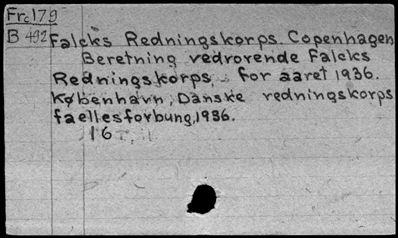 Fr.179
B 492 Falcks Redningskorps. Copenhagen
Beretning vedrorende Falcks
Redningskorps, for aaret 1936.
København, Danske redningskorps
faellesforbung, 1936.
16